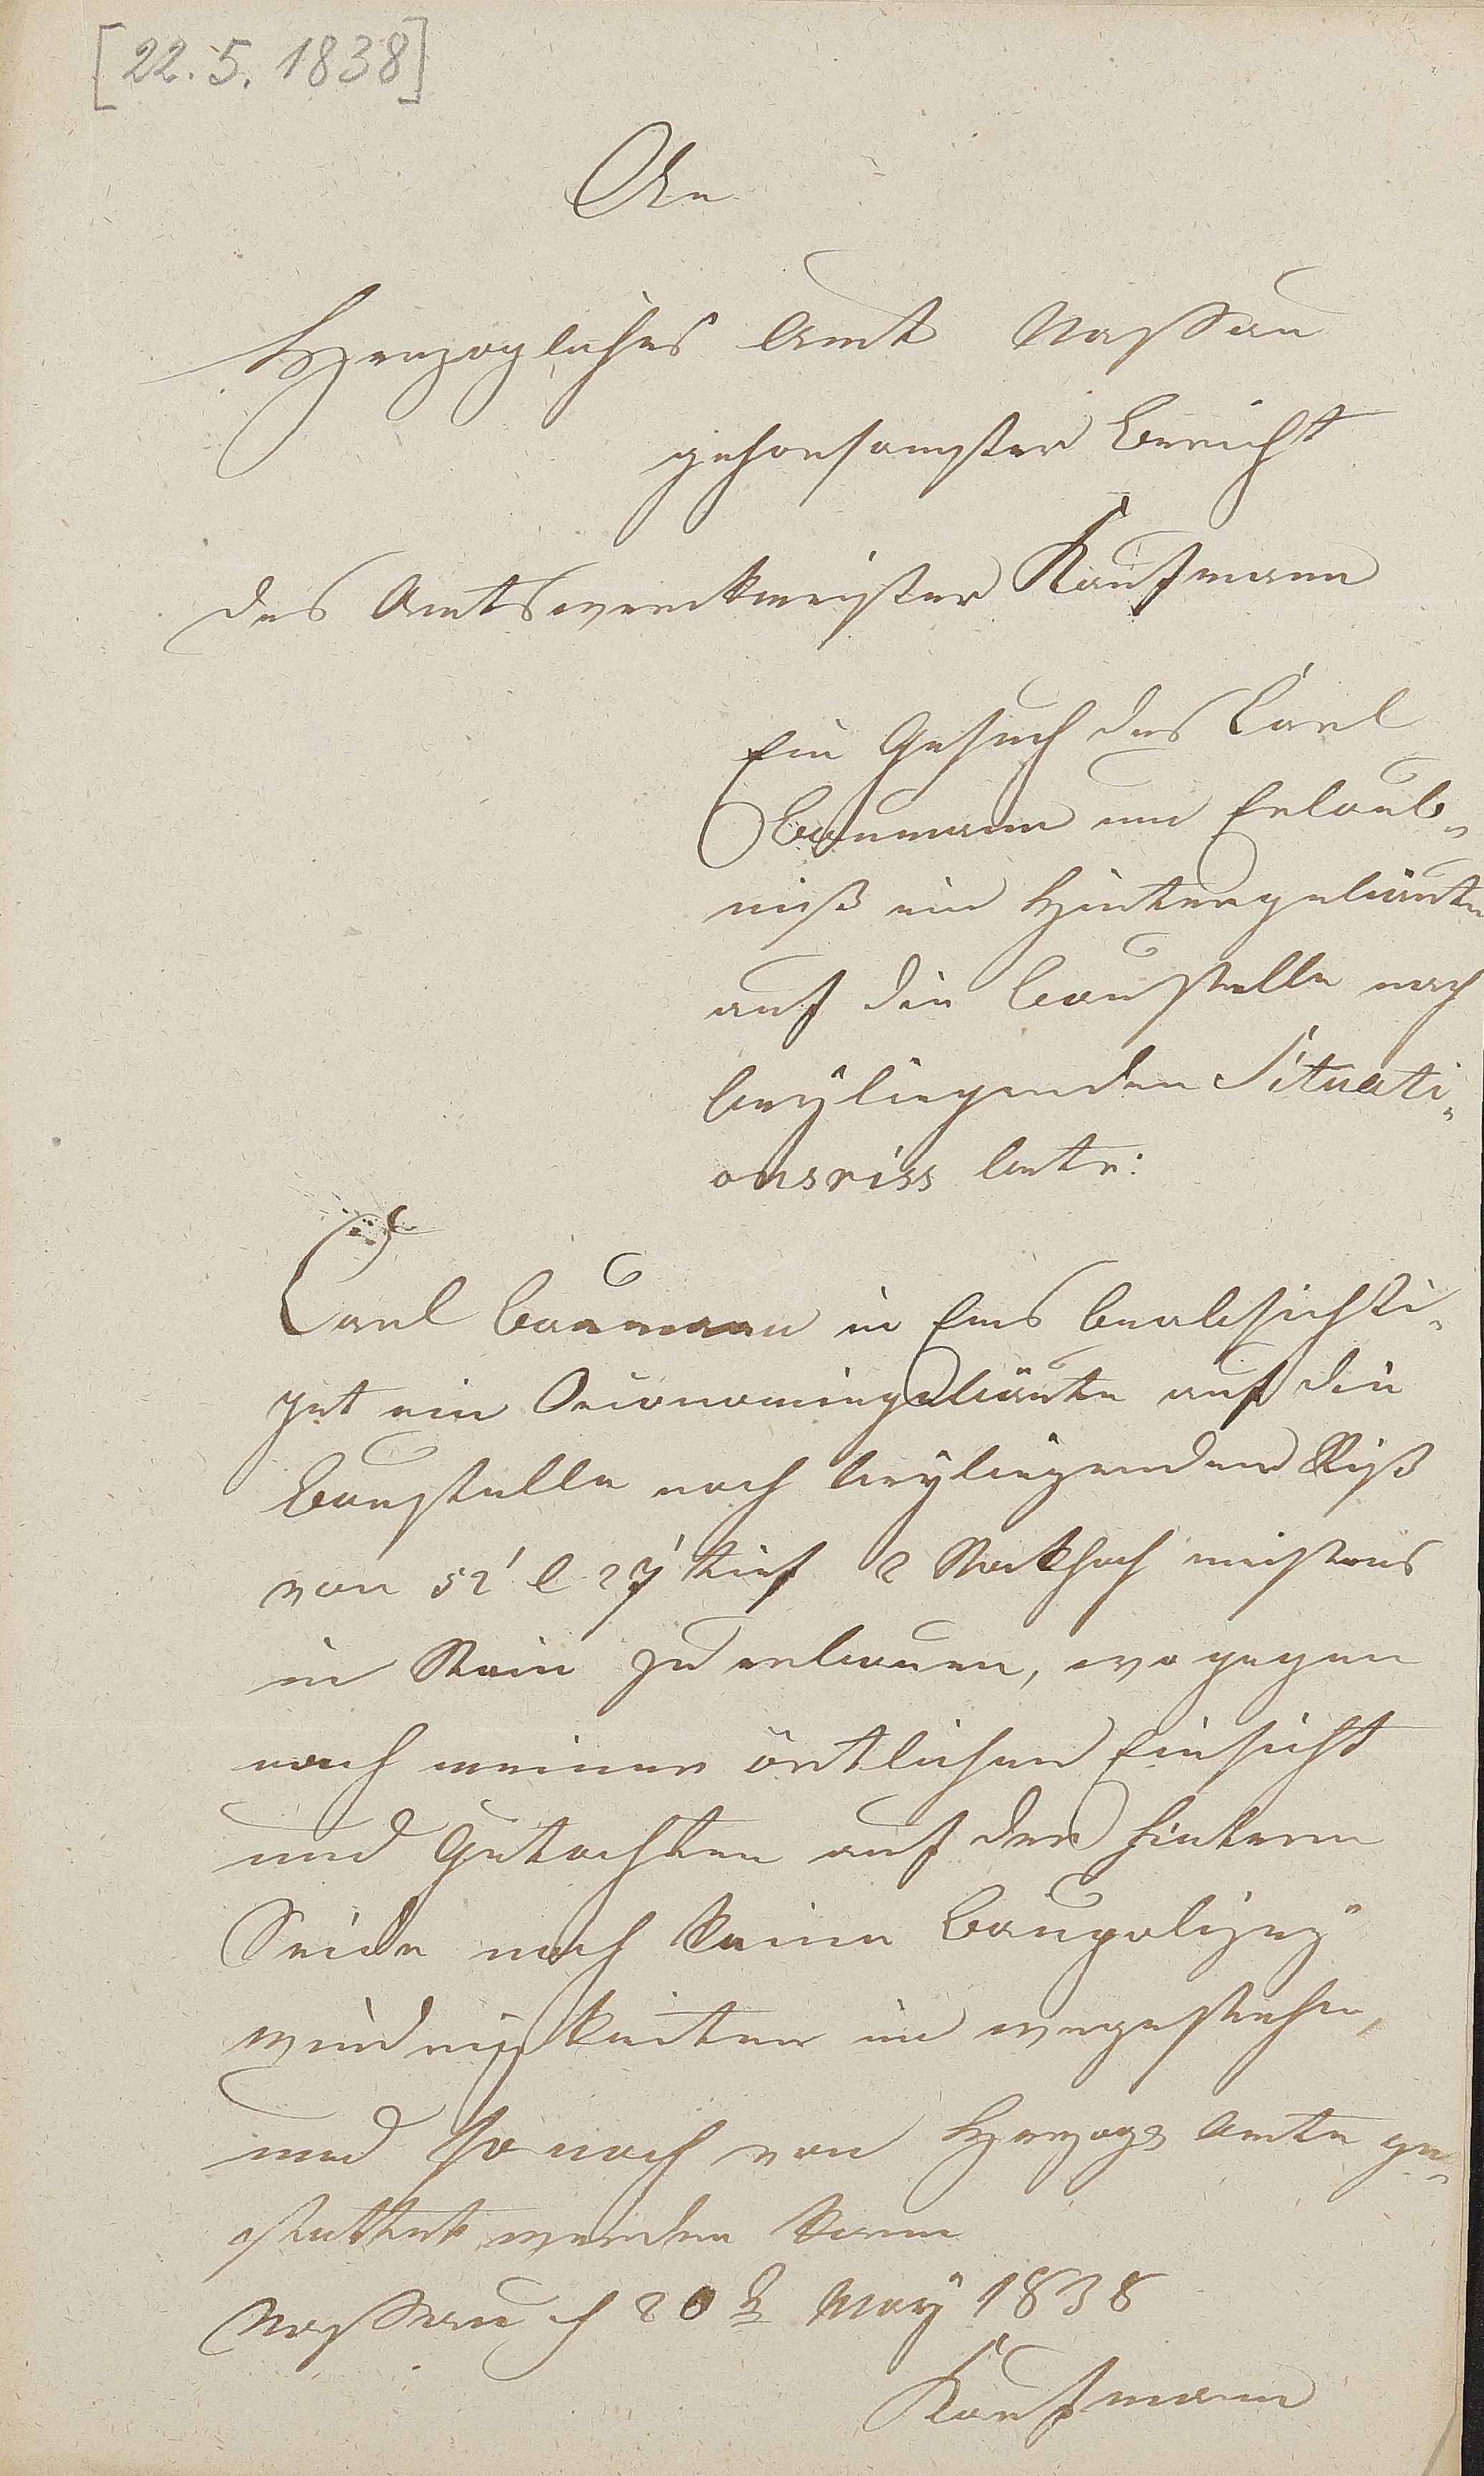 [22. 5. 1838]
An
Herzogliches Amt Nassau
gehorsamster Bericht
des Amtswerckmeister Kaufmann
Ein Gesuch des Carl
Baumann um Erlaub-
niß ein Hintergebäute
auf die Baustelle nach
beyliegenden Situati-
onsriss betr:
Carl Baumann in Ems beabsichti-
get ein Oeconomiegebäute auf die
Baustelle nach beyliegendem Riß
von 52' l 27' tief 2 Stockhoch meistens
in Stein zu erbauen, wogegen
nach meiner örtlichen Einsicht
und Gutachten auf der hintern
Seide noch keine Baupolizey
widrigkeiten im wege stehn,
und sonach von Herzogs Amte ge-
stattet werden kann
Nassau d 20t May 1838
Kaufmann